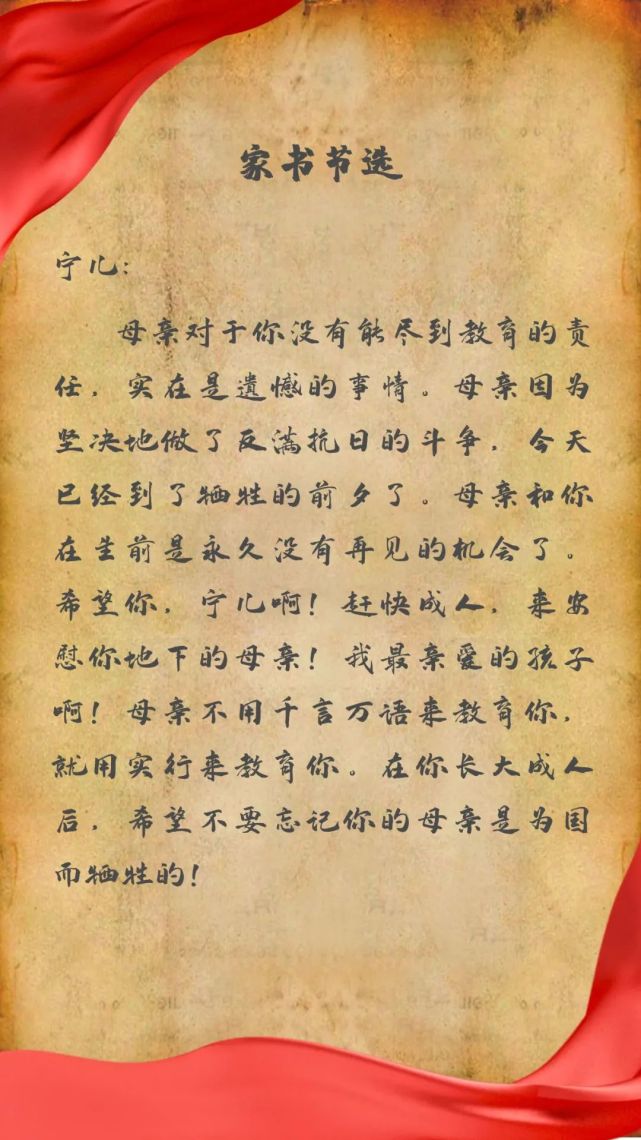 家书节选
宁儿:
母亲对于你没有能尽到教育的责
任，实在是遗憾的事情。母亲因为
坚决地做了反满抗日的斗争，今天
已经到了牺牲的前夕了。母亲和你
在生前是永久没有再见的机会了。
希望你，宁儿啊！赶快成人，来安
慰你地下的母亲！我最亲爱的孩子
啊！母亲不用千言万语来教育你，
就用实行来教育你。在你长大成人
后，希望不要忘记你的母亲是为国
而牺牲的！